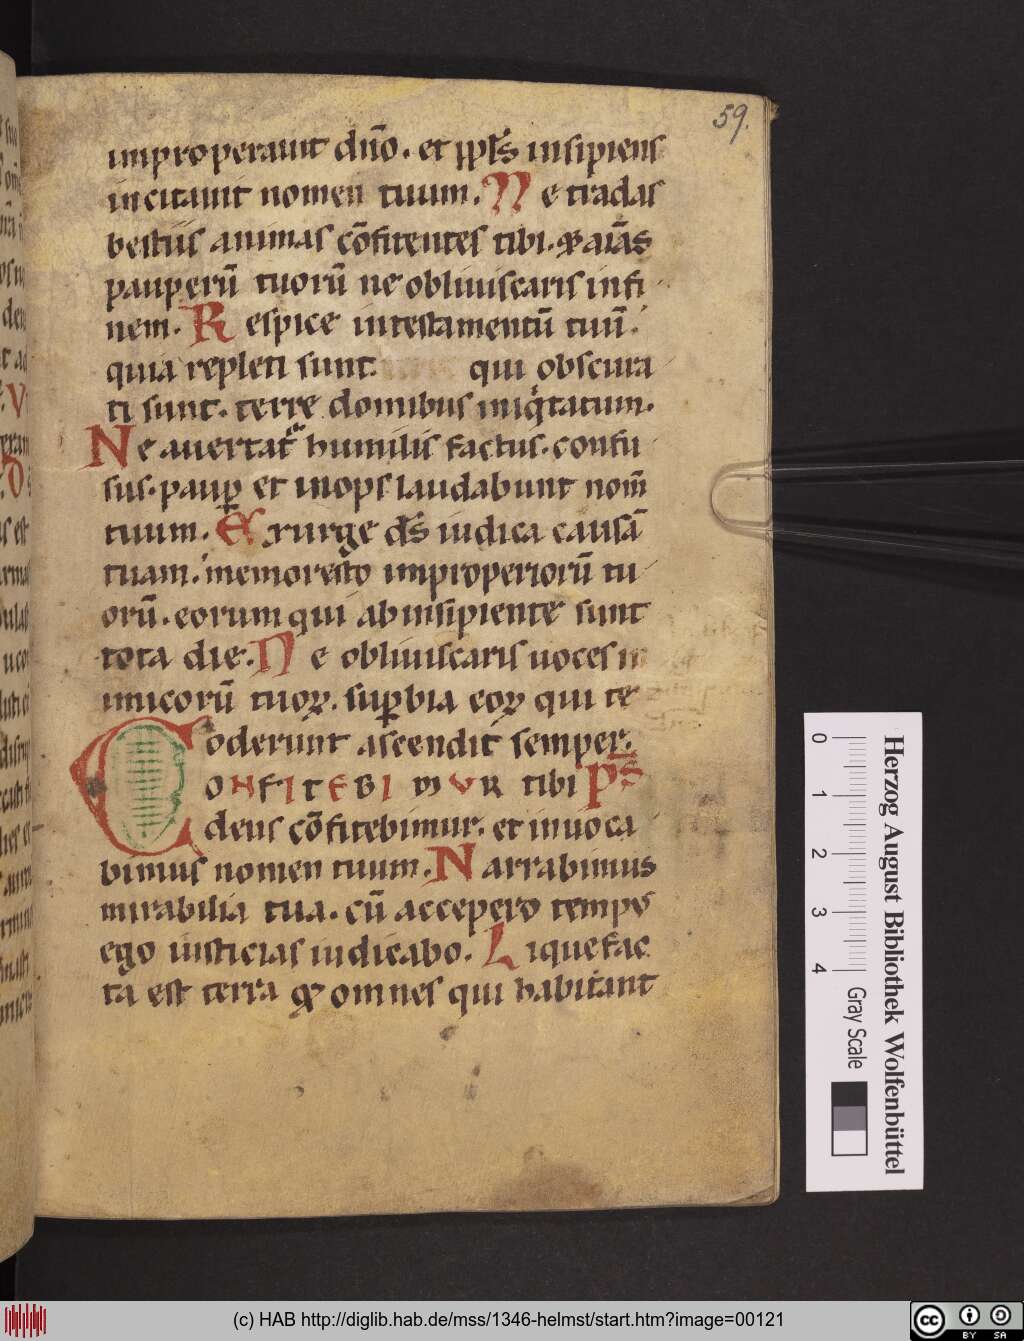 59.
improperauit dn̄o. et pp̄ls insipiens
incitauit nomen tuum. Ne tradas
bestiis animas cōfitentes tibi. & aīas
pauperū tuorū ne obliuiscaris infi
nem. Respice intestamentū tuū.
quia repleti sunt qui obscura
ti sunt. terre domibus iniqͥtatum.
Ne auertatᷣ humilis factus. confu
sus. paup̱ et inops laudabunt nom̄
tuum. Exurge d̄s iudica causā
tuam. memoresto improperiorū tu
orū. eorum qui abinsipiente sunt
tota die. Ne obliuiscaris uoces in
imicorū tuoꝝ. sup̱bia eoꝝ qui te
oderunt ascendit semper.
CONFITEBIMUR tibi Ps̄
deus cōfitebimur. et inuoca
bimus nomen tuum. Narrabimus
mirabilia tua. cū accepero tempꝰ
ego iusticias iudicabo. Liquefac
ta est terra & omnes qui habitant
0 1 2 3 4
Gray Scale
Herzog August Bibliothek Wolfenbüttel
(c) HAB http://diglib.hab.de/mss/1346-helmst/start.htm?image=00121
cc BY SA